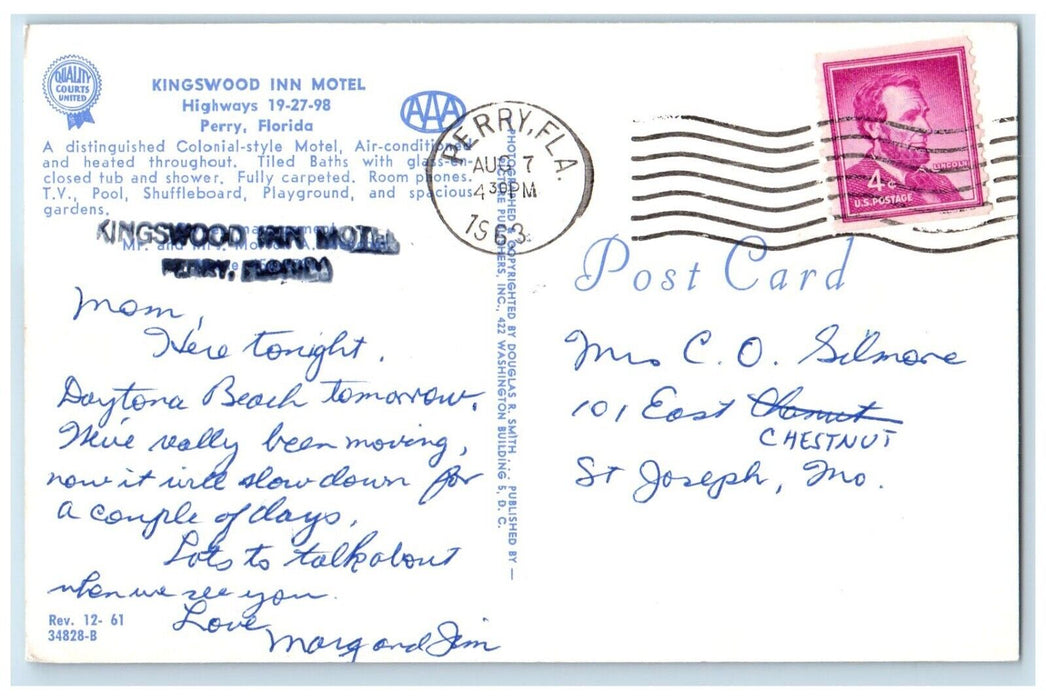 QUALITY
COURTS
UNITED
KINGSWOOD INN MOTEL
Highways 19-27-98
Perry, Florida
AAA
A distinguished Colonial-style Motel, Air-conditioned
and heated throughout. Tiled Baths with glass-en-
closed tub and shower. Fully carpeted. Room phones.
T.V., Pool, Shuffleboard, Playground, and spacious
gardens.
KINGSWOOD INN MOTEL
PERRY, FLORIDA
Mom,
Here tonight.
Daytona Beach tomorrow.
We've really been moving,
now it will slow down for
a couple of days.
Lots to talk about
when we see you.
Love,
Marg and Jim
Rev. 12- 61
34828-B
PHOTOGRAPHED & COPYRIGHTED BY DOUGLAS R. SMITH . . . PUBLISHED BY —
INC., 422 WASHINGTON BUILDING 5, D. C.
PERRY, FLA.
AUG 7
4 30 PM
1963
LINCOLN
4¢
U.S. POSTAGE
Post Card
Mrs C. O. Gilmore
101 East
CHESTNUT
St Joseph, Mo.